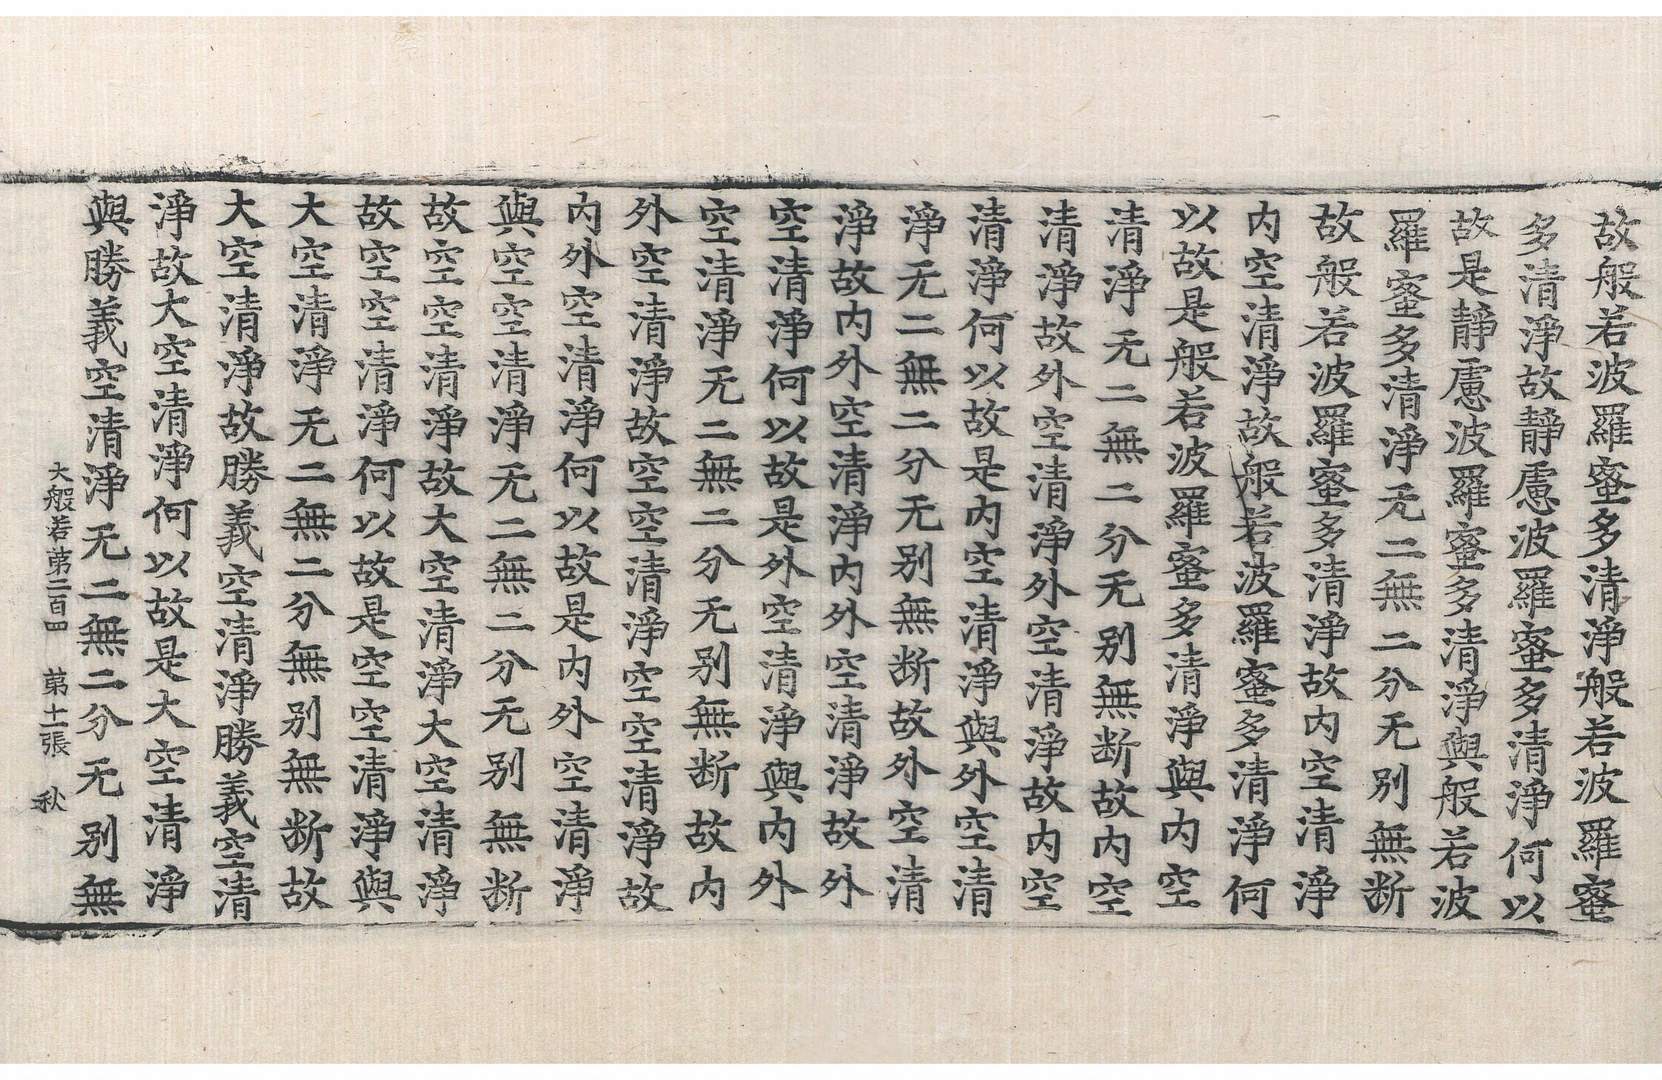 故般若波羅蜜多清淨般若波羅蜜
多清淨故靜慮波羅蜜多清淨何以
故是靜慮波羅蜜多清淨與般若波
羅蜜多清淨无二無二分无别無断
故般若波羅蜜多清淨故内空清淨
内空清淨故般若波羅蜜多清淨何
以故是般若波羅蜜多清淨與内空
清淨无二無二分无别無断故内空
清淨故外空清淨外空清淨故内空
清淨何以故是内空清淨與外空清
淨无二無二分无别無断故外空清
淨故内外空清淨内外空清淨故外
空清淨何以故是外空清淨與内外
空清淨无二無二分无别無断故内
外空清淨故空空清淨空空清淨故
内外空清淨何以故是内外空清淨
與空空清淨无二無二分无别無断
故空空清淨故大空清淨大空清淨
故空空清淨何以故是空空清淨與
大空清淨无二無二分無别無断故
大空清淨故勝義空清淨勝義空清
淨故大空清淨何以故是大空清淨
與勝義空清淨无二無二分无别無
大般若第二百四 第十二張 秋